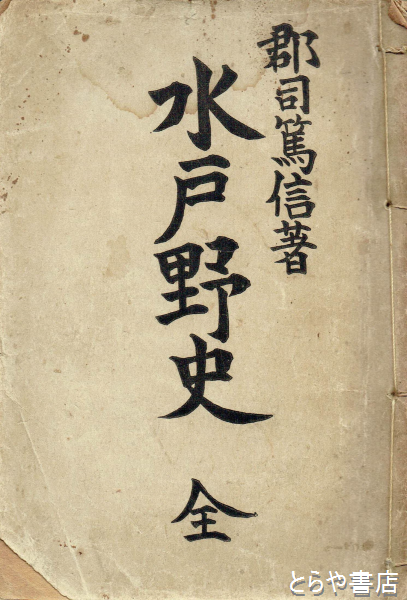 郡司篤信著
水戸野史 全
とらや書店